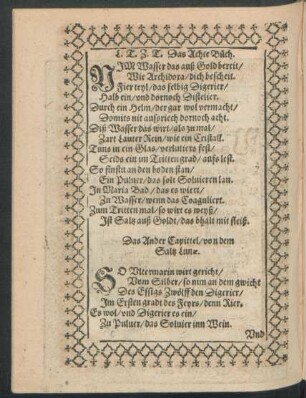 L. T. Z. T. Das Achte Büch.
NIM Wasser das auß Gold bereit/
Wie Archidoxa/ dich bescheit.
Fier teyl/ das selbig Digerier/
Halb ein/ vnd dornoch Distelier.
Durch ein Helm/ der gar wol vermacht/
Domits nit aufsriech dornoch acht.
Diß Wasser das wirt/ als zu mal/
Zart Lauter Rein/ wie ein Cristall.
Tuns in ein Glas/ verlutiers fest/
Seids ein im Tritten grad/ aufs lest.
So finstu an den boden stan/
Ein Puluer/ das solt Soluieren lan.
In Maria Bad/ das es wiert/
Zu Wasser/ wenn das Coaguliert.
Zum Tritten mal/ so wirt es weyß/
Ist Saltz auß Goldt/ das bhalt mit fleiß.
Das Ander Capittel/ von dem
Saltz Lunæ.
SO Vlternarin wirt gericht/
Vom Silber/ so nim an dem gwicht
Des Essigs Zwölff den Digerier/
Im Ersten gradt des Feyrs/ denn Rier.
Es wol/ vnd Digerier es ein/
Zu Puluer/ das Soluier inn Wein.
Vnd